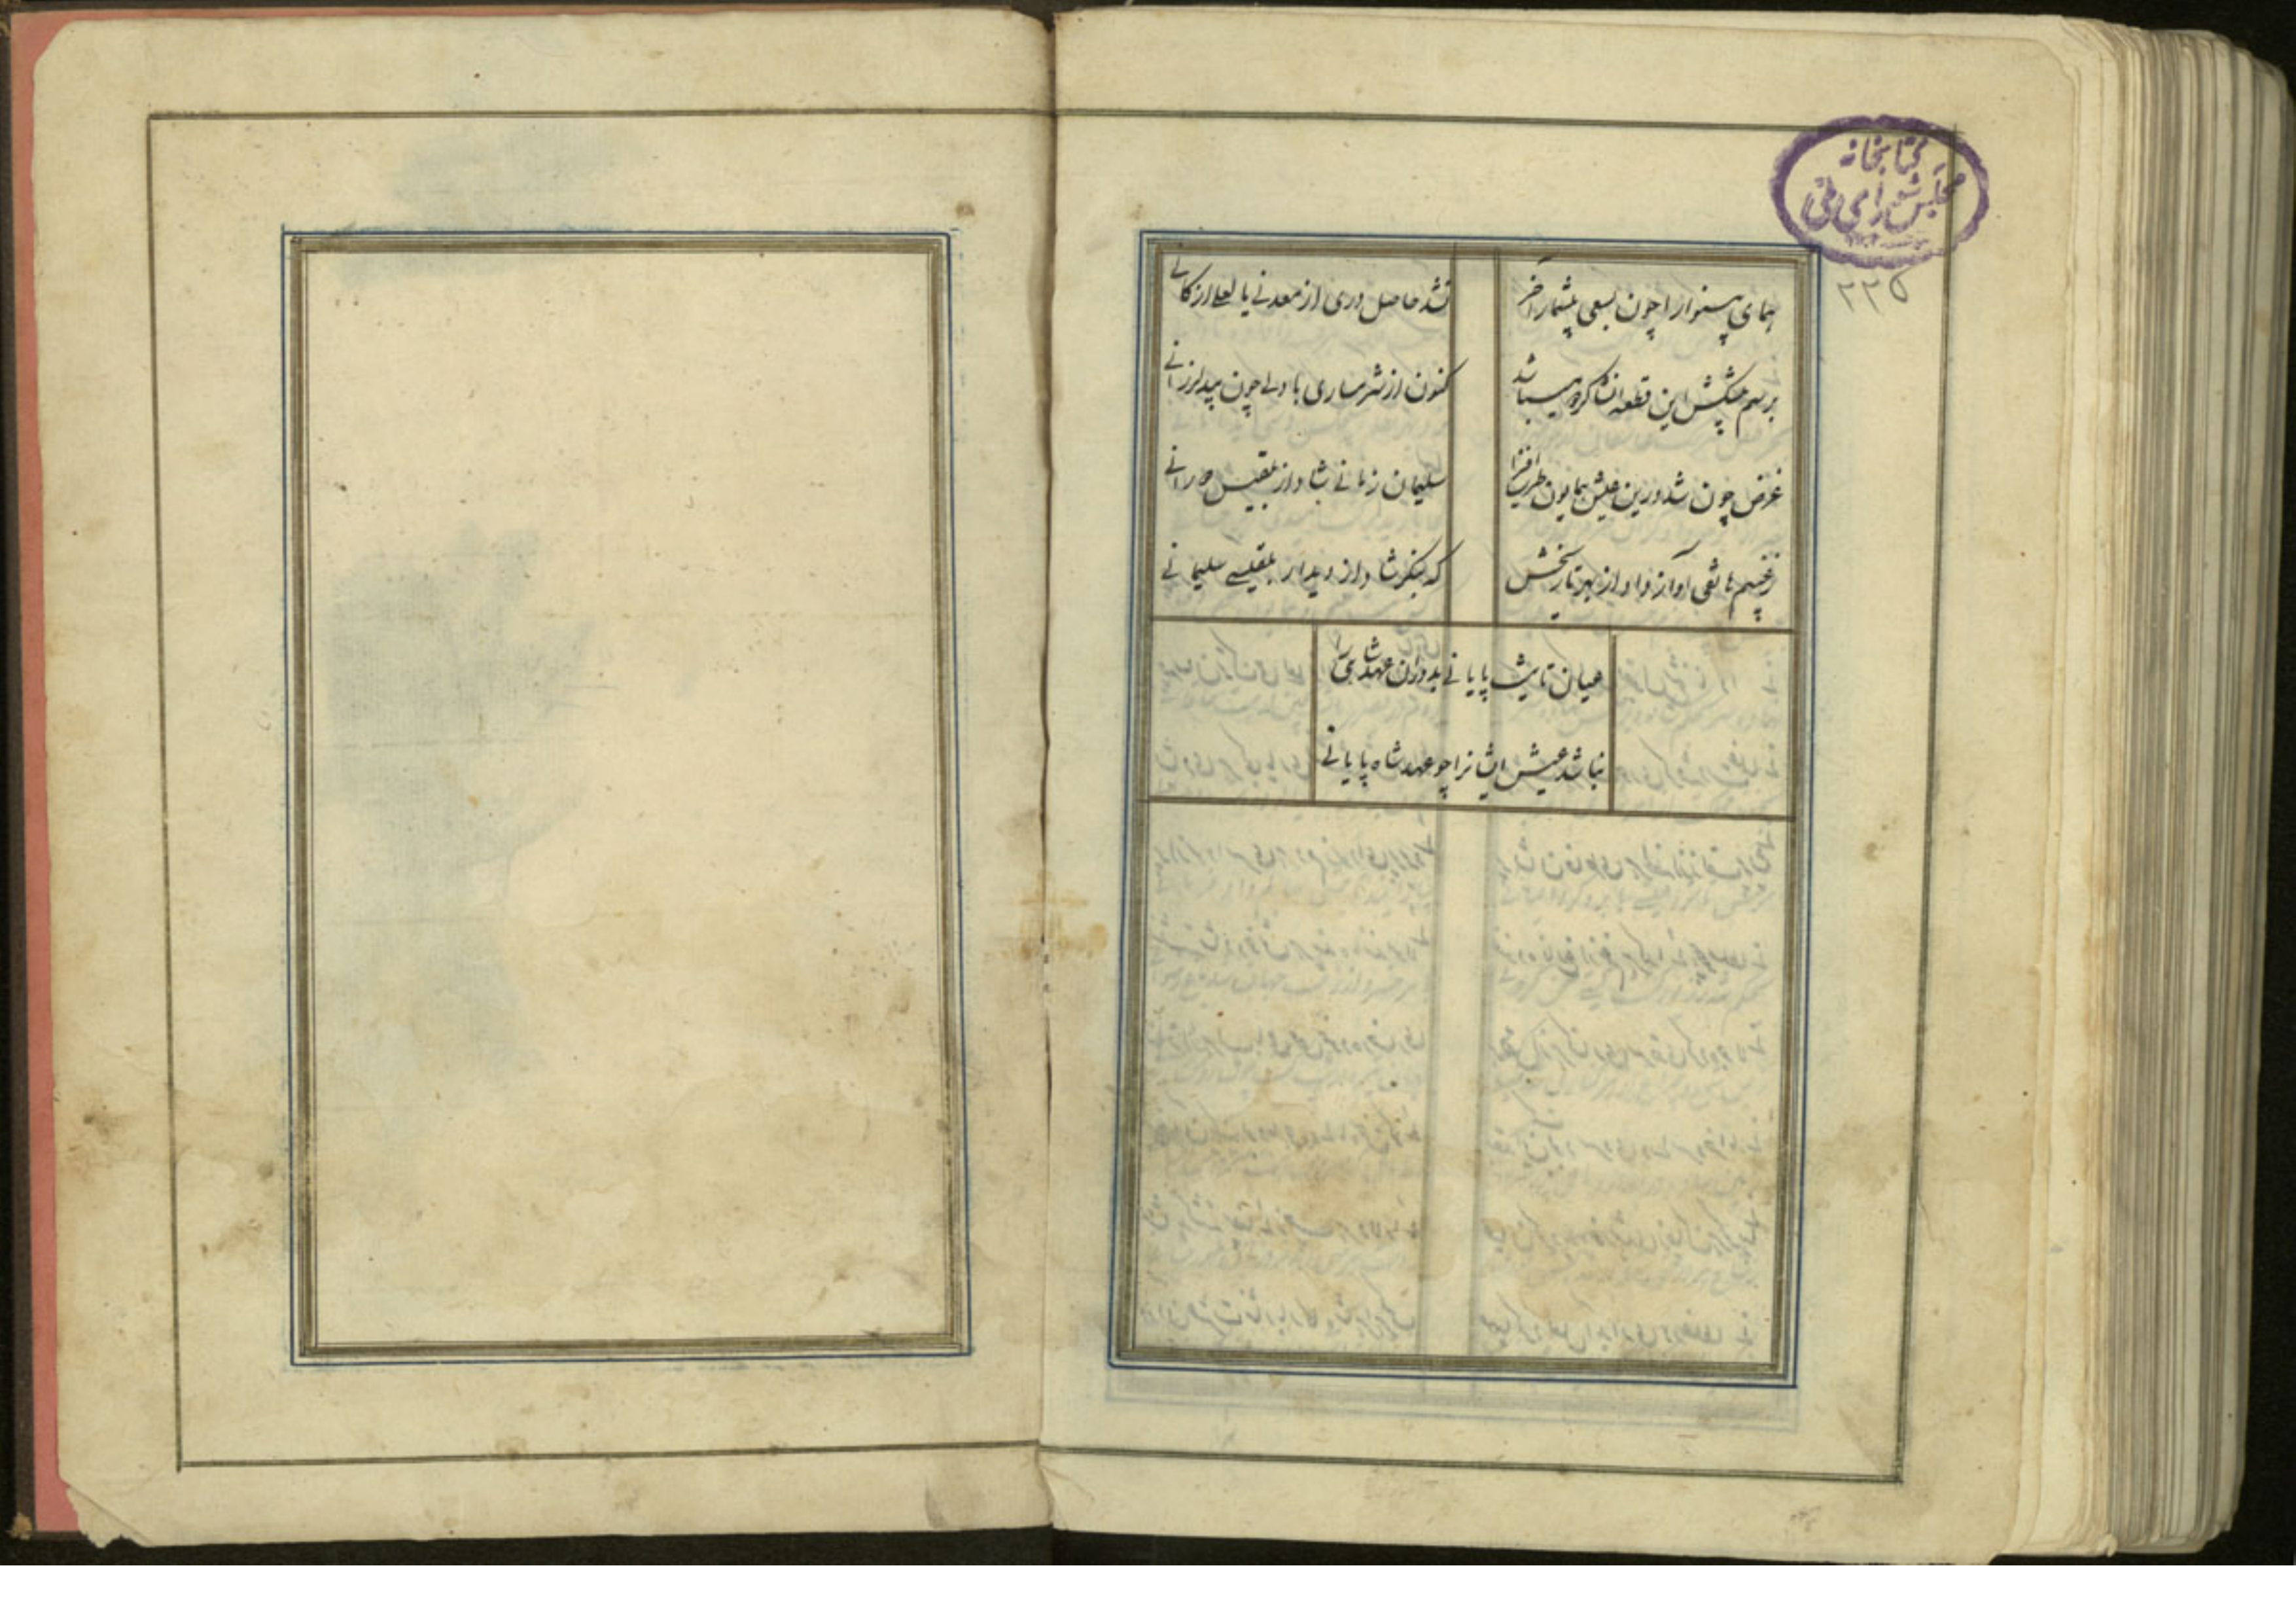 کتابخانه
مجلس شورای ملی
۲۲۵
همای بینوا را چون بسعی بیشمار آخر
نشد حاصل دری از معدنی یا لعلی از کانی
برسم پیشکش این قطعه انشا کرد و میباشد
کنون از شرمساری با دلی چون بید لرزانی
غرض چون شد درین عیش همایون طرب افزا
سلیمان زمانی شاد از بلقیس دورانی
ز غیبم هاتفی آواز داد از بهر تاریخش
که بنگر شاد از دیدار بلقیسی سلیمانی
پایانی بدوران عهد شادی را
نباشد عیش ایشانرا چو عهد شاه پایانی